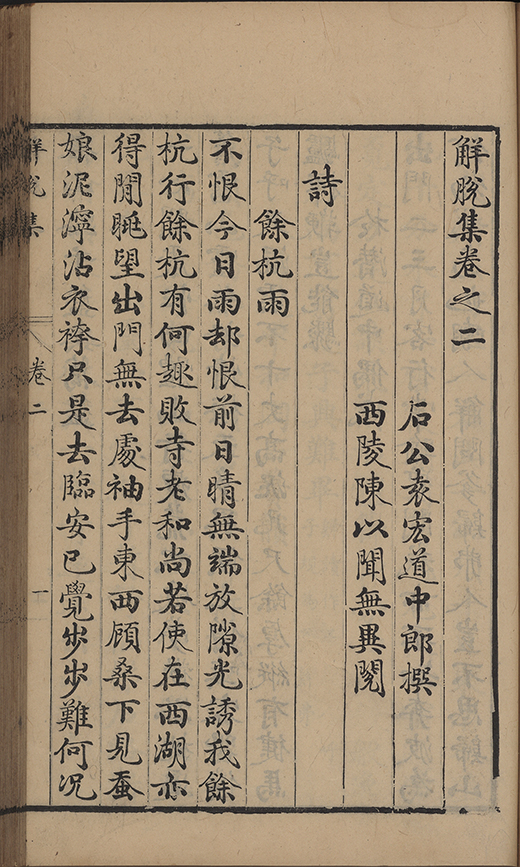 解脫集卷之二
石公袁宏道中郎撰
西陵陳以聞無異閱
詩
餘杭雨
不恨今日雨却恨前日晴無端放隙光誘我餘
杭行餘杭有何趣敗寺老和尚若使在西湖亦
得閒眺望出門無去處袖手東西頋桑下見蚕
娘泥濘沾衣袴只是去臨安已覺步步難何况
解脫集 卷二 一